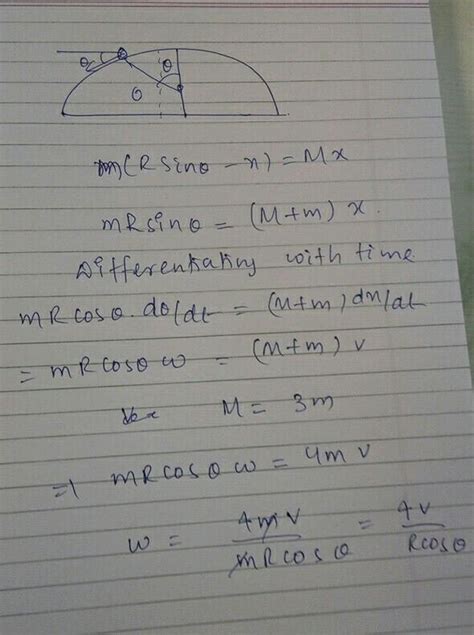 θ θ
θ
m(R sinθ - x) = Mx
mR sinθ = (M+m) x.
Differentiating with time.
mR cosθ. dθ/dt = (M+m) dx/dt
= mR cosθ ω = (M+m) v
M = 3m
=) mR cosθ ω = 4m v
ω = 4mv / mR cosθ = 4v / R cosθ